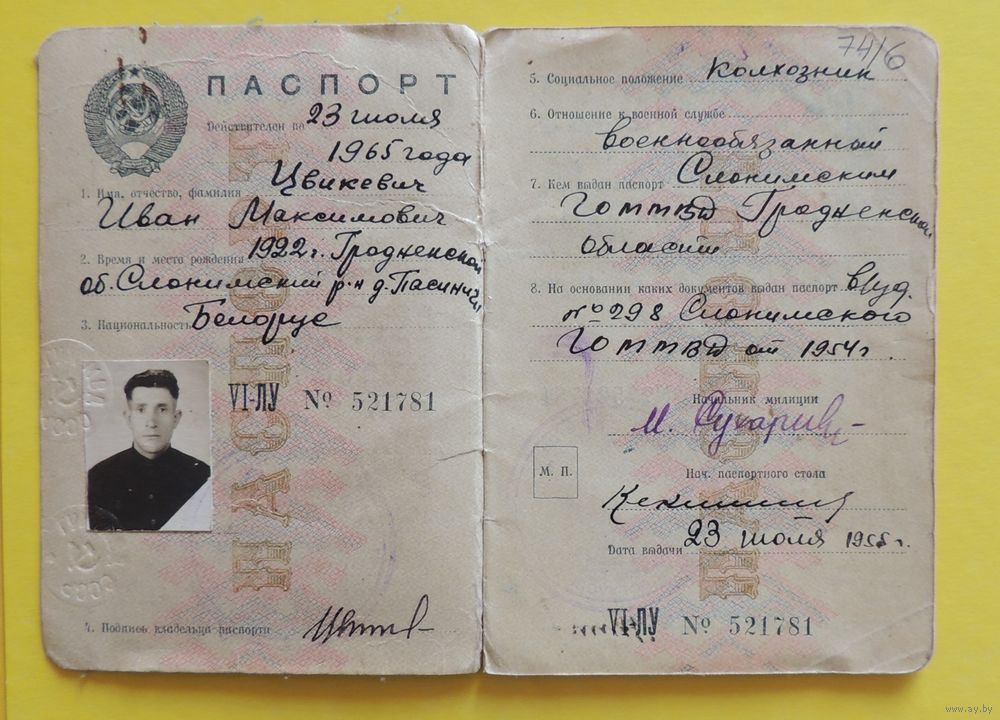 ПАСПОРТ
Действителен по 23 июля
1965 года
1. Имя, отчество, фамилия Цвикевич
Иван Максимович
2. Время и место рождения 1922 г. Гродненской
об. Слонимский р-н д. Пасиничи
3. Национальность Белорус
VI-ЛУ № 521781
4. Подпись владельца паспорта
74/6
5. Социальное положение Колхозник
6. Отношение к военной службе
военнообязанный
7. Кем выдан паспорт Слонимским
ГОММВД Гродненской
области
8. На основании каких документов выдан паспорт в/уд.
№ 298 Слонимского
ГОММВД от 1954 г.
Начальник милиции
М. П.
Нач. паспортного стола
Дата выдачи 23 июля 1955 г.
VI-ЛУ № 521781
www.ay.by